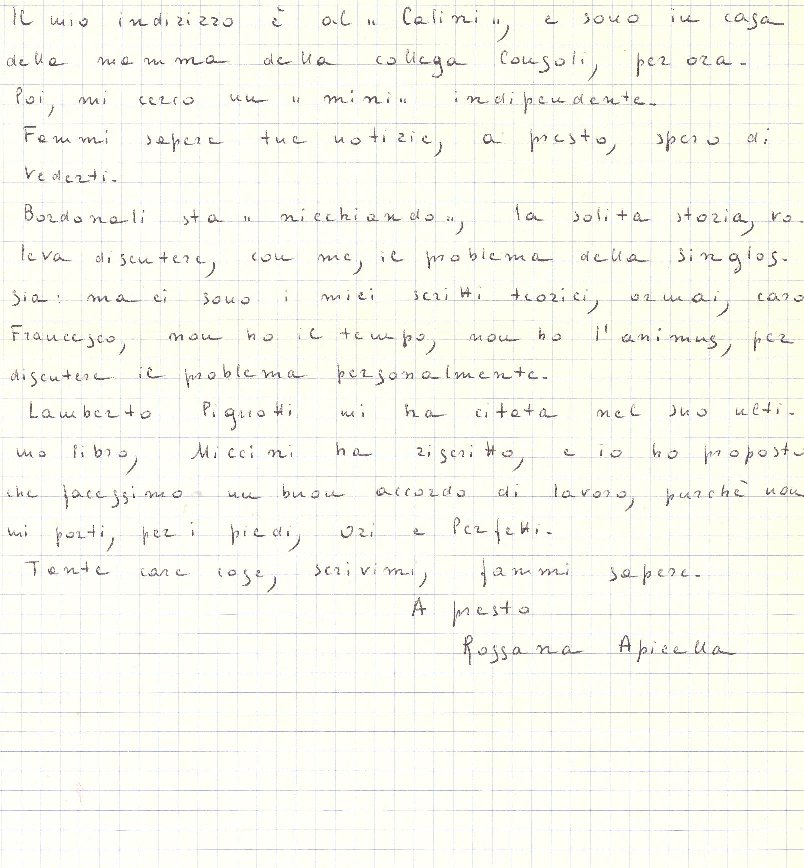 Il mio indirizzo è al "Calini", e sono in casa
della mamma della collega Consoli, per ora.
Poi, mi cerco un "mini" indipendente.
Fammi sapere tue notizie, a presto, spero di
vederti.
Bordonali sta "nicchiando", la solita storia, vo-
leva discutere, con me, il problema della singlos-
sia: ma ci sono i miei scritti teorici, ormai, caro
Francesco, non ho il tempo, non ho l'animus, per
discutere il problema personalmente.
Lamberto Pignotti mi ha citata nel suo ulti-
mo libro, Miccini ha riscritto, e io ho proposto
che facessimo un buon accordo di lavoro, purchè non
mi porti, per i piedi, Ori e Perfetti.
Tante care cose, scrivimi, fammi sapere.
A presto
Rossana Apicella